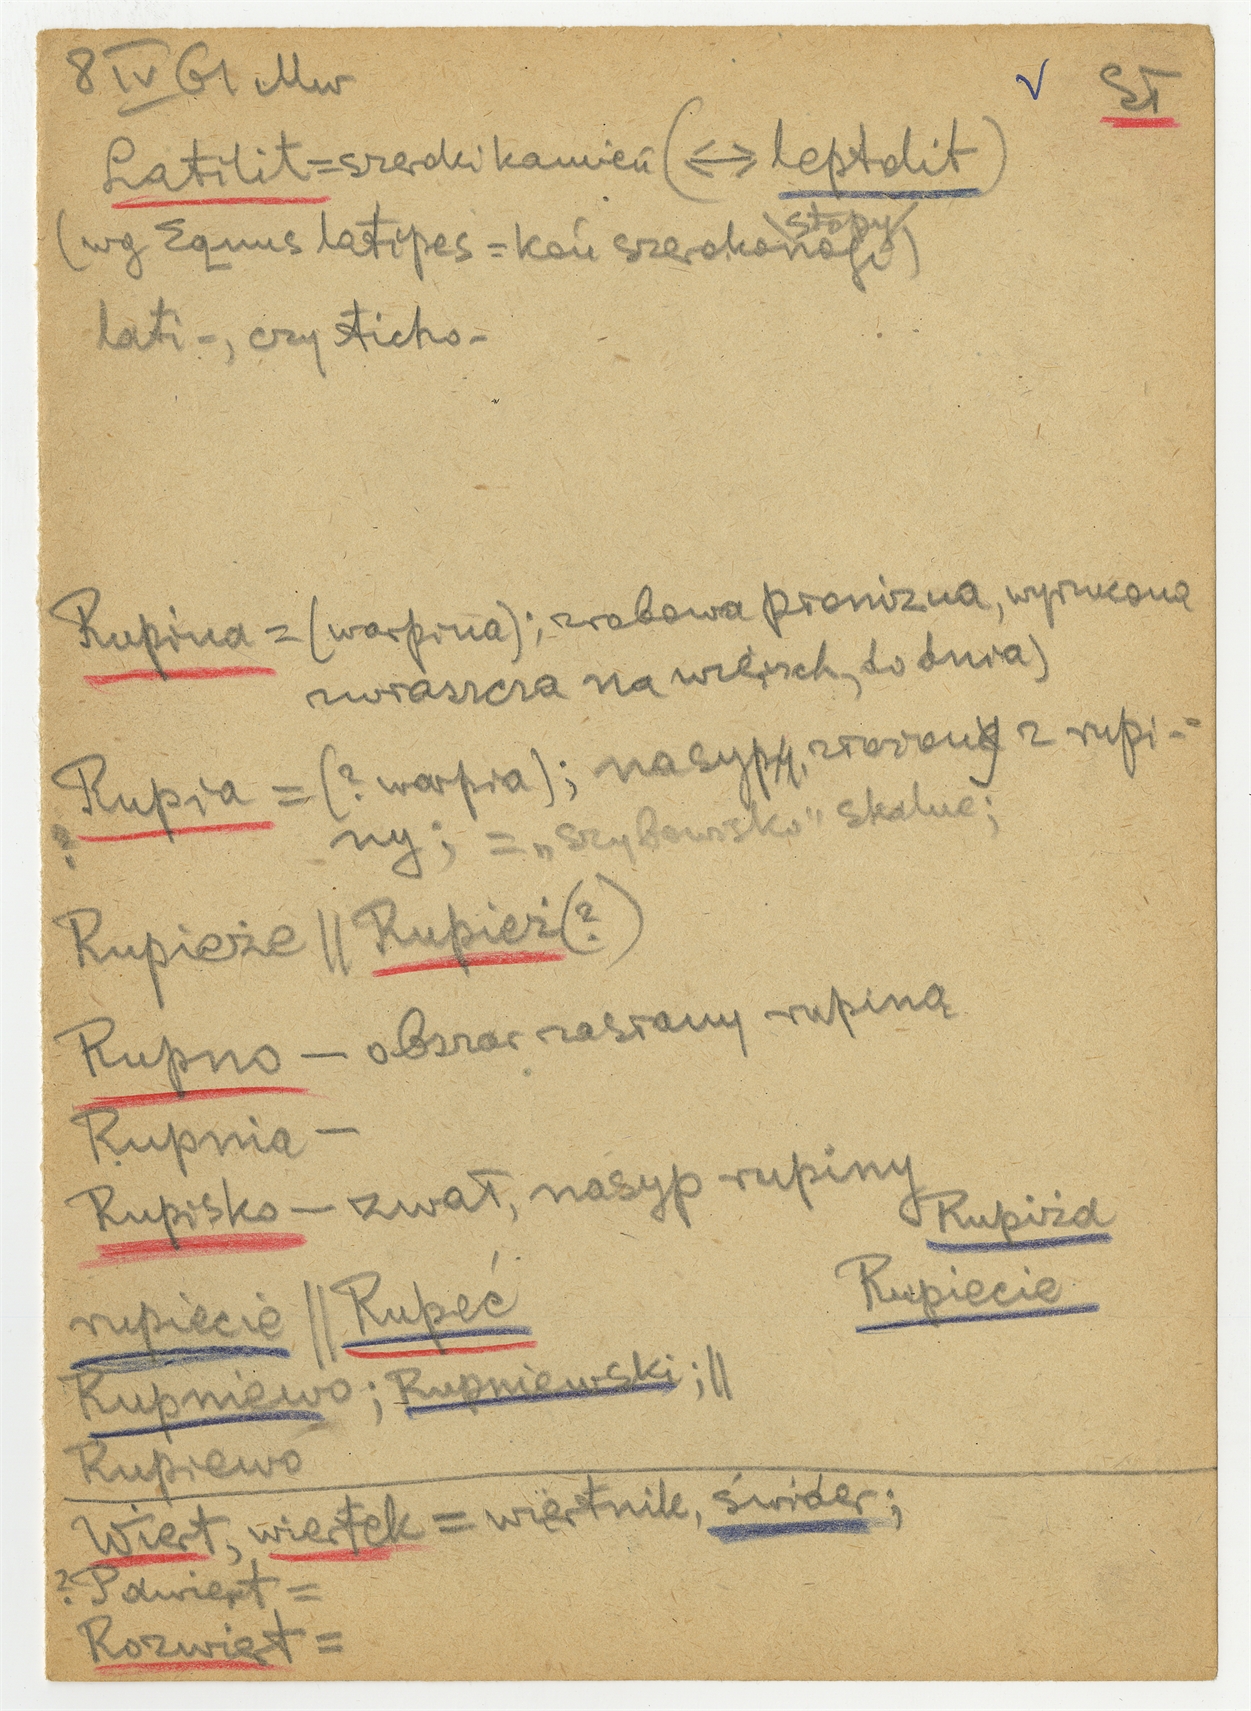 8 IV 61 Mw √ SŁ
Latilit = szeroki kamień (↔ leptolit)
stopy
(wg Equus latipes = koń szerokonogi)
lati-, czy sticho-
Rupina = (warpina); zrobowa płonizna, wyrzucona
zwłaszcza na wzierzch, do dnia)
Rupia = (? warpia); nasypy, złożony z rupi-
? ny; = „szybowisko" skalne;
Rupieże || Rupież (?)
Rupno — obszar zasłany rupiną
Rupnia —
Rupisko — zwał, nasyp rupiny
Rupiżd
rupiecie || Rupeć Rupiecie
Rupniewo; Rupniewski; ||
Rupiewo
Wiert, wiertek = wiertnik, świder;
? Powiert =
Rozwiert =